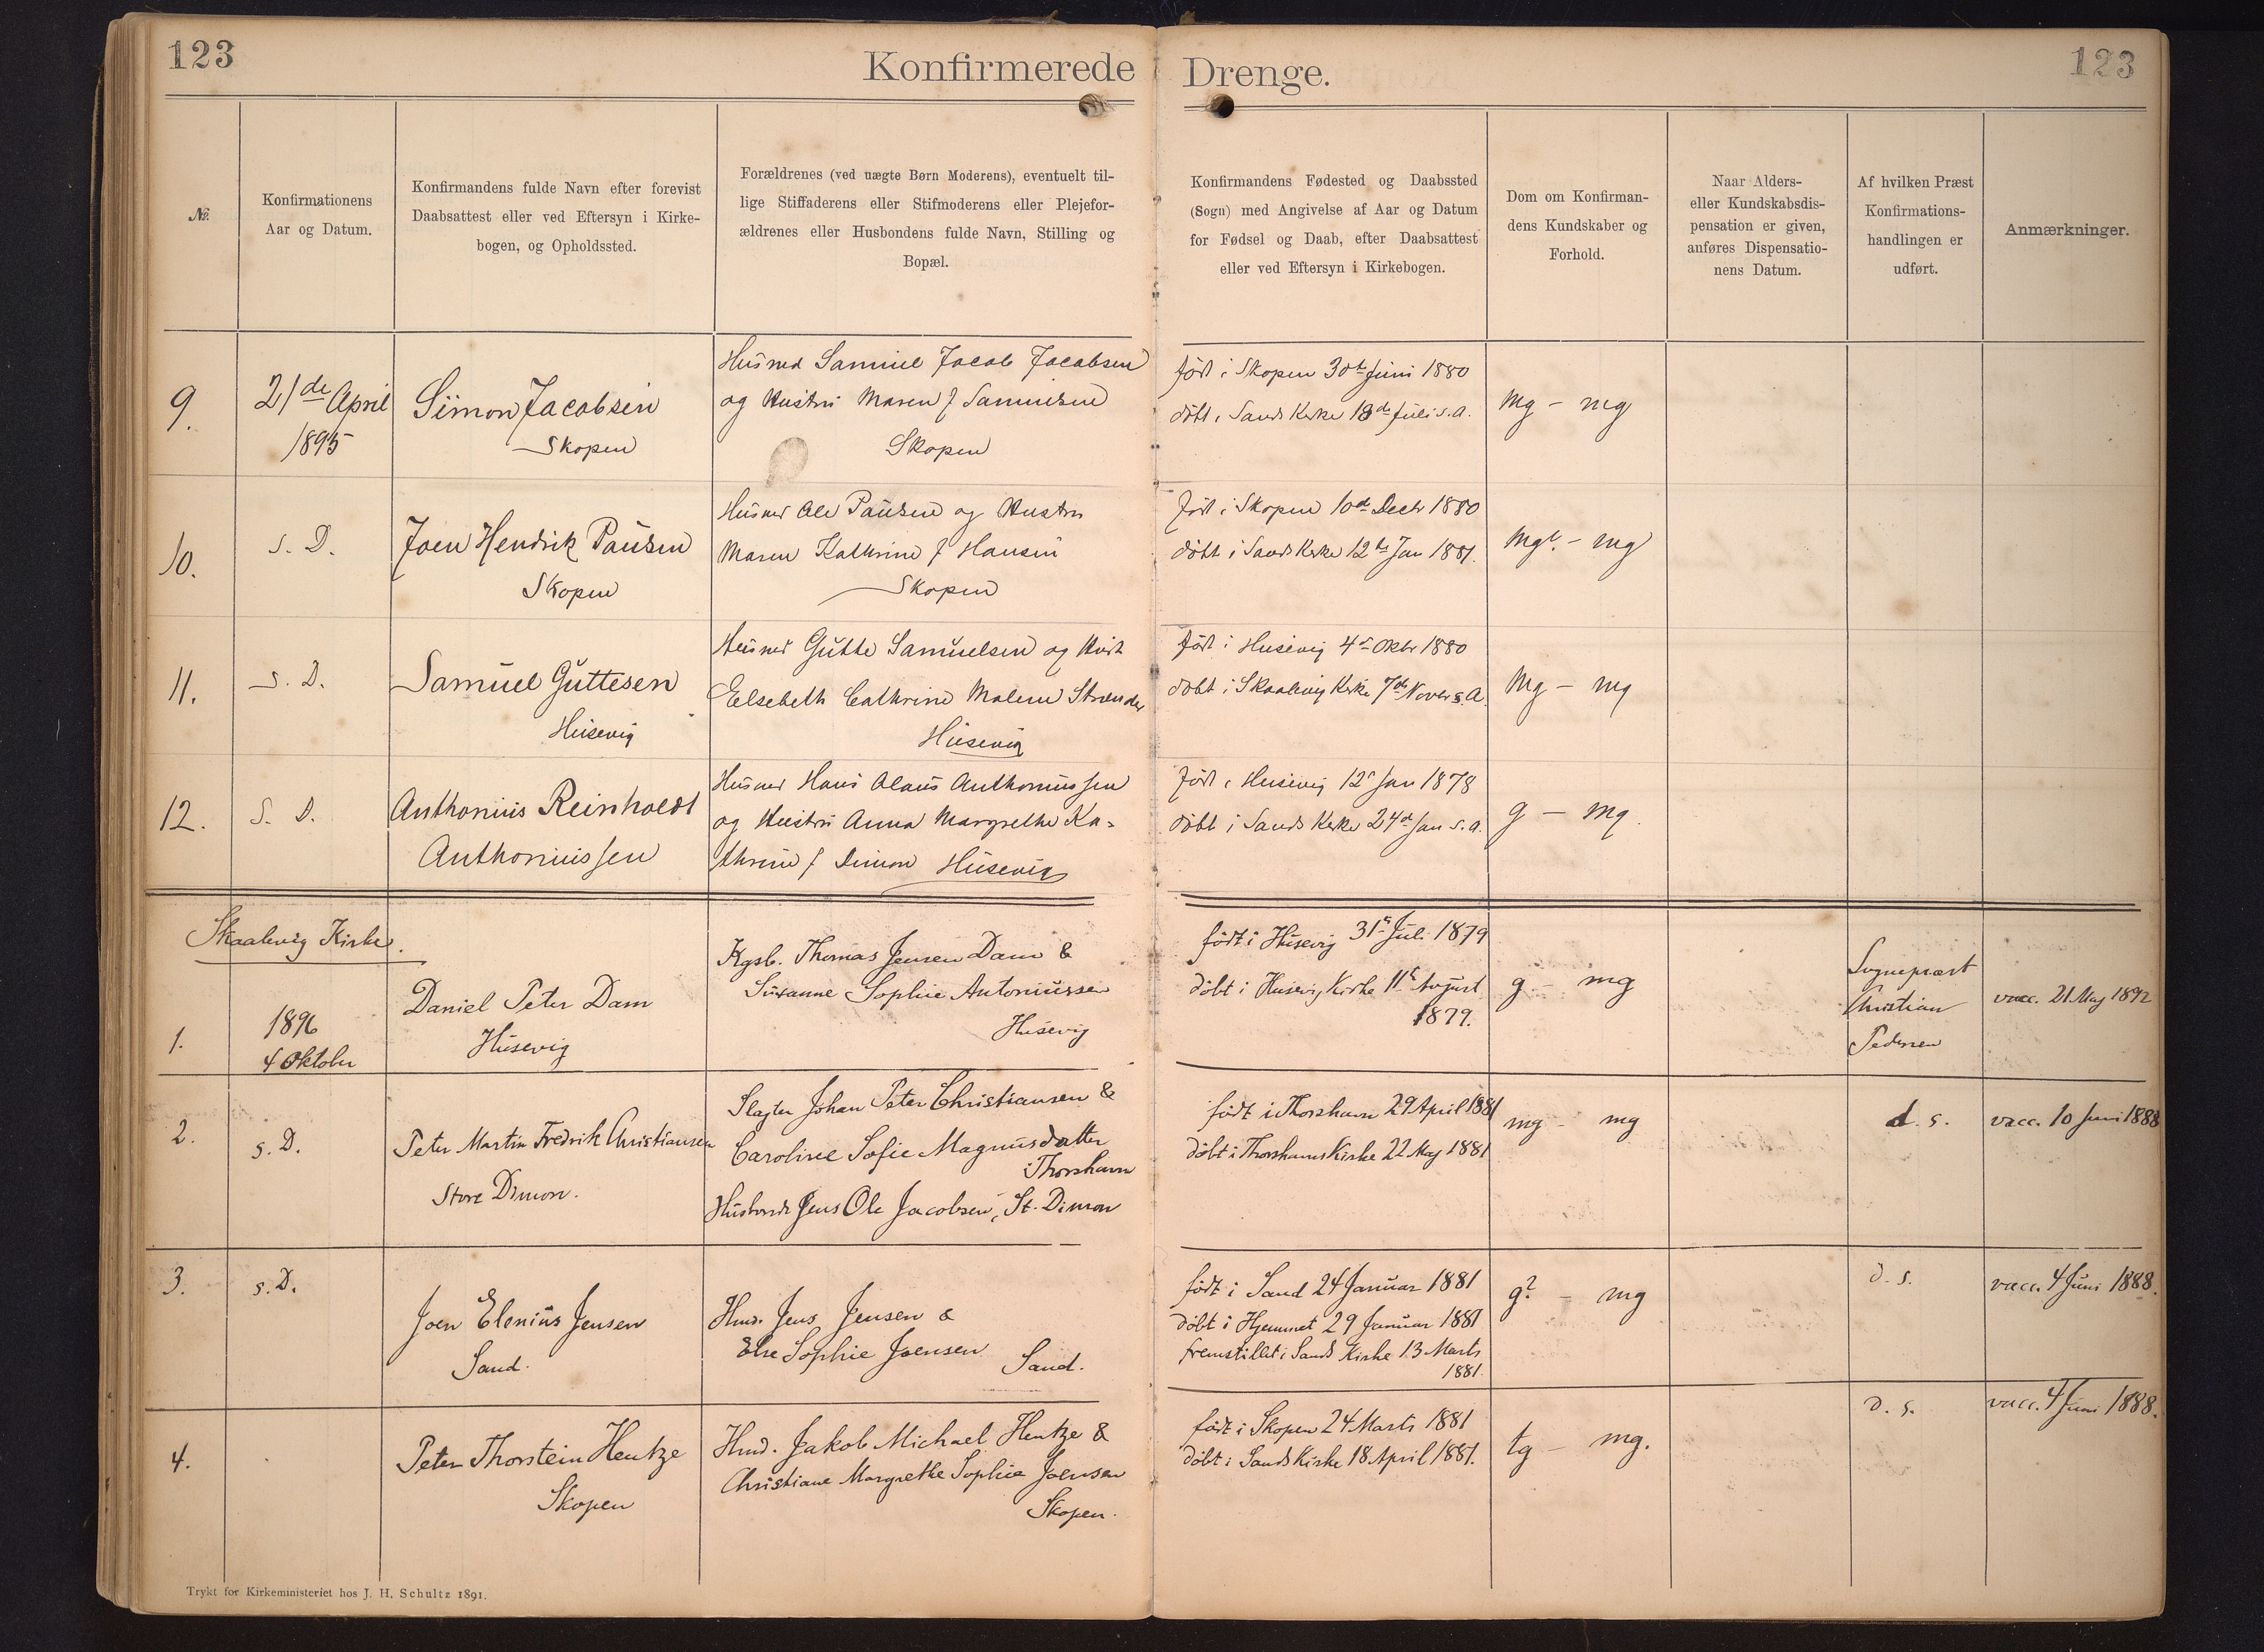 123
Konfirmerede Drenge.
123
№
Konfirmationens
Aar og Datum.
Konfirmandens fulde Navn efter forevist
Daabsattest eller ved Eftersyn i Kirke-
bogen, og Opholdssted.
Forældrenes (ved uægte Børn Moderens), eventuelt til-
lige Stiffaderens eller Stifmoderens eller Plejefor-
ældrenes eller Husbondens fulde Navn, Stilling og
Bopæl.
Konfirmandens Fødested og Daabssted
(Sogn) med Angivelse af Aar og Datum
for Fødsel og Daab, efter Daabsattest
eller ved Eftersyn i Kirkebogen.
Dom om Konfirman-
dens Kundskaber og
Forhold.
Naar Alders-
eller Kundskabsdis-
pensation er given,
anføres Dispensatio-
nens Datum.
Af hvilken Præst
Konfirmations-
handlingen er
udført.
Anmærkninger.
9.
21de April
1895
Simon Jacobsen
Skopen
Husmd Samuel Jacob Jacobsen
og Hustru Maren f Samuelsen
Skopen
født i Skopen 30te Juni 1880
døbt i Sands Kirke 18de Juli s.a.
Mg - mg
10.
S. D.
Joen Hendrik Paulsen
Skopen
Husmd Ole Paulsen og Hustru
Maren Kathrine f Hansen
Skopen
født i Skopen 10de Decbr 1880
døbt i Sands Kirke 12te Jan 1881.
Mg? - mg
11.
S. D.
Samuel Guttesen
Husevig
Husmd Gutte Samuelsen og Hust
Elsebeth Cathrine Malene
Husevig
født i Husevig 4de Oktbr 1880
døbt i Skaalevig Kirke 7de Novbr s.A.
Mg - mg
12.
S. D.
Anthonius Reinholdt
Anthoniussen
Husmd Hans Olaus Anthoniussen
og Hustru Anna Margrethe Ka-
thrine f Dimon Husevig
født i Husevig 12te Jan 1878
døbt i Sands Kirke 24de Jan s.a.
g - mg.
Skaalevig Kirke.
1.
1896
4 Oktober
Daniel Peter Dam
Husevig
Kgsb. Thomas Jensen Dam &
Susanne Sophie Antoniussen
Husevig
født i Husevig 31te Juli 1879
døbt i Husevig Kirke 11te August
1879.
g - mg
Sognepræst
Christian
Pedersen
vacc. 21 Maj 1892
2.
s. D.
Peter Martin Fredrik Christiansen
Store Dimon.
Slagter Johan Peter Christiansen &
Caroline Sofie Magnusdatter
i Thorshavn
Husbonde Jens Ole Jacobsen, St. Dimon
født i Thorshavn 29 April 1881
døbt i Thorshavns Kirke 22 Maj 1881
mg - mg
d. s.
vacc. 10 Juni 1888
3.
s. D.
Joen Elenius Jensen
Sand.
Hmd. Jens Jensen &
Else Sophie Joensen
Sand.
født i Sand 24 Januar 1881
døbt i Hjemmet 29 Januar 1881
fremstillet i Sands Kirke 13 Marts
1881.
g? - mg
d. s.
vacc. 4 Juni 1888.
4.
Peter Thorstein Hentze
Skopen
Hmd. Jakob Michael Hentze &
Christiane Margrethe Sophie Joensen
Skopen.
født i Skopen 24 Marts 1881
døbt i Sands Kirke 18 April 1881.
tg - mg.
d. s.
vacc. 4 Juni 1888.
Trykt for Kirkeministeriet hos J. H. Schultz 1891.